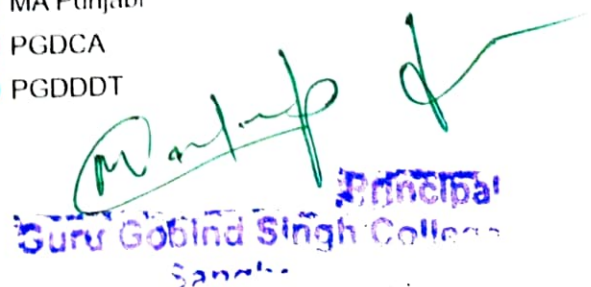 MA Punjabi
PGDCA
PGDDDT
Principal
Guru Gobind Singh College